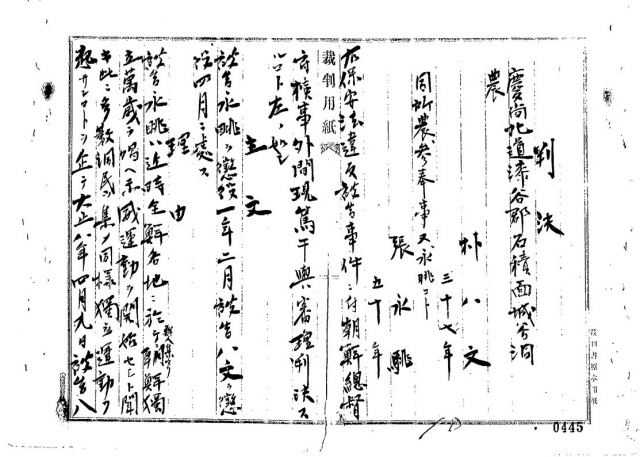 判決
慶尚北道漆谷郡石積面城谷洞
農
朴八文
三十七年
同所農参奉事又永眺コト
張永眺
五十年
右保安法違反被告事件ニ付朝鮮総督
府検事外間現篤干與審理判決スル
コト左ノ如シ
主文
被告永眺ヲ懲役一年二月被告八文ヲ懲
役四月ニ処ス
理由
被告永眺ハ近時全鮮各地ニ於テ朝鮮独
立萬歳ヲ唱ヘ示威運動ヲ開始セシト聞
キ此ニ多数洞民ヲ集メ同様独立運動ヲ
起サンコトヲ企テ大正八年四月九日被告八
裁判用紙
0445